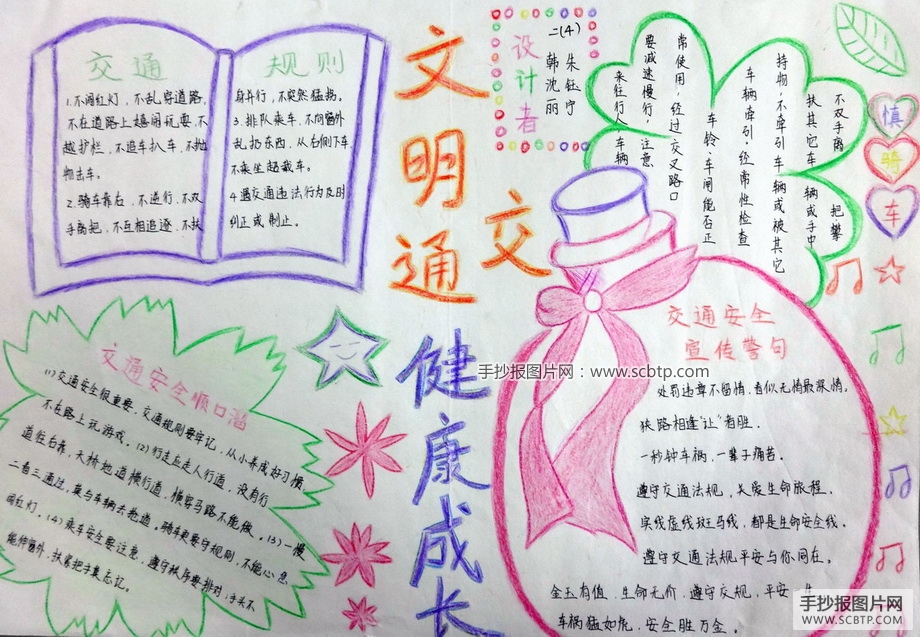 交通规则
1.不闯红灯，不乱穿道路，
不在道路上嬉闹玩耍，不
越护栏，不追车扒车，不抛
物击车。
2.骑车靠右，不逆行，不双
手离把，不互相追逐，不扶
身并行，不突然猛拐。
3.排队乘车，不向窗外
乱扔东西，从右侧下车，
不乘坐超载车。
4.遇交通违法行为及时
纠正或制止。
文明交通
健康成长
设计者
二(4)
朱钰宁
韩沈丽
慎骑车
不双手离把攀
扶其它车辆或手中
持物，不牵引车辆或被其它
车辆牵引，经常性检查
车铃、车闸能否正
常使用，经过交叉路口
要减速慢行，注意
来往行人、车辆
交通安全顺口溜
(1)交通安全很重要，交通规则要牢记，从小养成好习惯，
不在路上玩游戏。(2)行走应走人行道，没有行
道往右靠，天桥地道横行道，横穿马路不能做。(3)一慢
二看三通过，莫与车辆去抢道。骑车更要守规则，不能心急
闯红灯。(4)乘车安全要注意，遵守秩序要排对；手头不
能伸窗外，扶紧把手莫忘记。
交通安全
宣传警句
处罚违章不留情，看似无情最深情。
狭路相逢“让”者胜。
一秒钟车祸，一辈子痛苦。
遵守交通法规，关爱生命旅程。
实线虚线斑马线，都是生命安全线。
遵守交通法规，平安与你同在。
金玉有值，生命无价，遵守交规，平安一生
车祸猛如虎，安全胜万金。
手抄报图片网：www.scbtp.com
手抄报图片网
WWW.SCBTP.COM